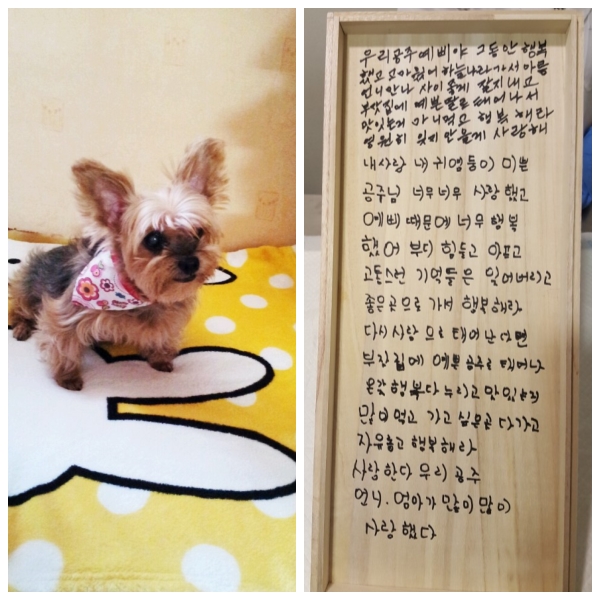 우리공주 예삐야 그동안 행복
했고 고마웠어 하늘나라가서 아름
언니만나 사이좋게 잘지내고
부잣집에 예쁜딸로 태어나서
맛있는거 마니먹고 행복해라
영원히 잊지안을게 사랑해
내사랑 내귀염둥이 이쁜
공주님 너무너무 사랑했고
예삐 때문에 너무 행복
했어 부디 힘들고 아프고
고통스런 기억들은 잊어버리고
좋은곳으로 가서 행복해라
다시사랑으로 태어난다면
부잣집에 예쁜공주로 태어나
온갖행복다누리고 맛있는거
많이먹고 가고싶은곳 다가고
자유롭고 행복해라
사랑한다 우리공주
언니.엄아가 많이많이
사랑했다